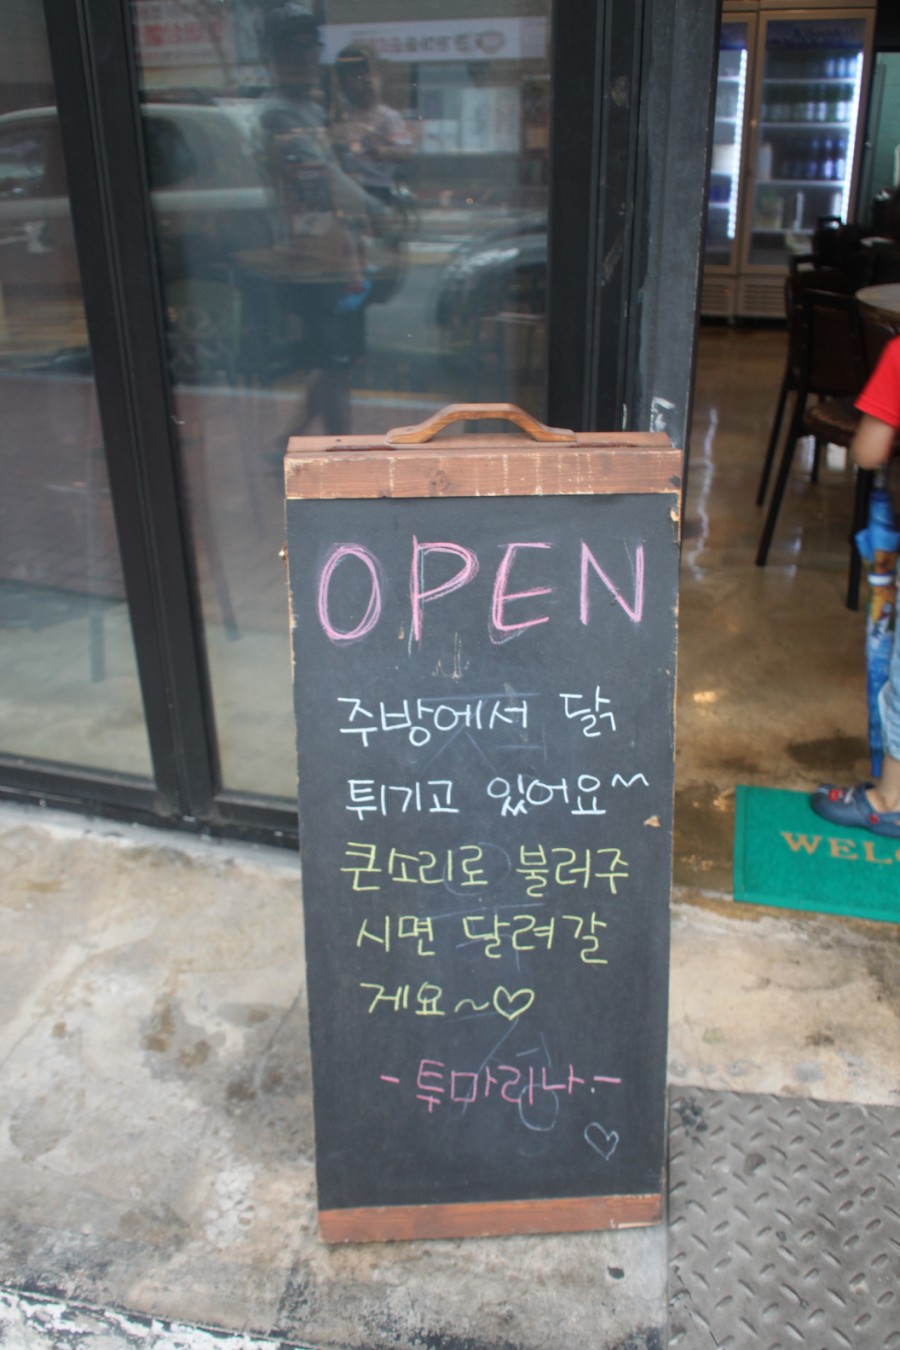 OPEN
주방에서 닭
튀기고 있어요~
큰소리로 불러주
시면 달려갈
게요~♡
-투마리나-
♡
WELC